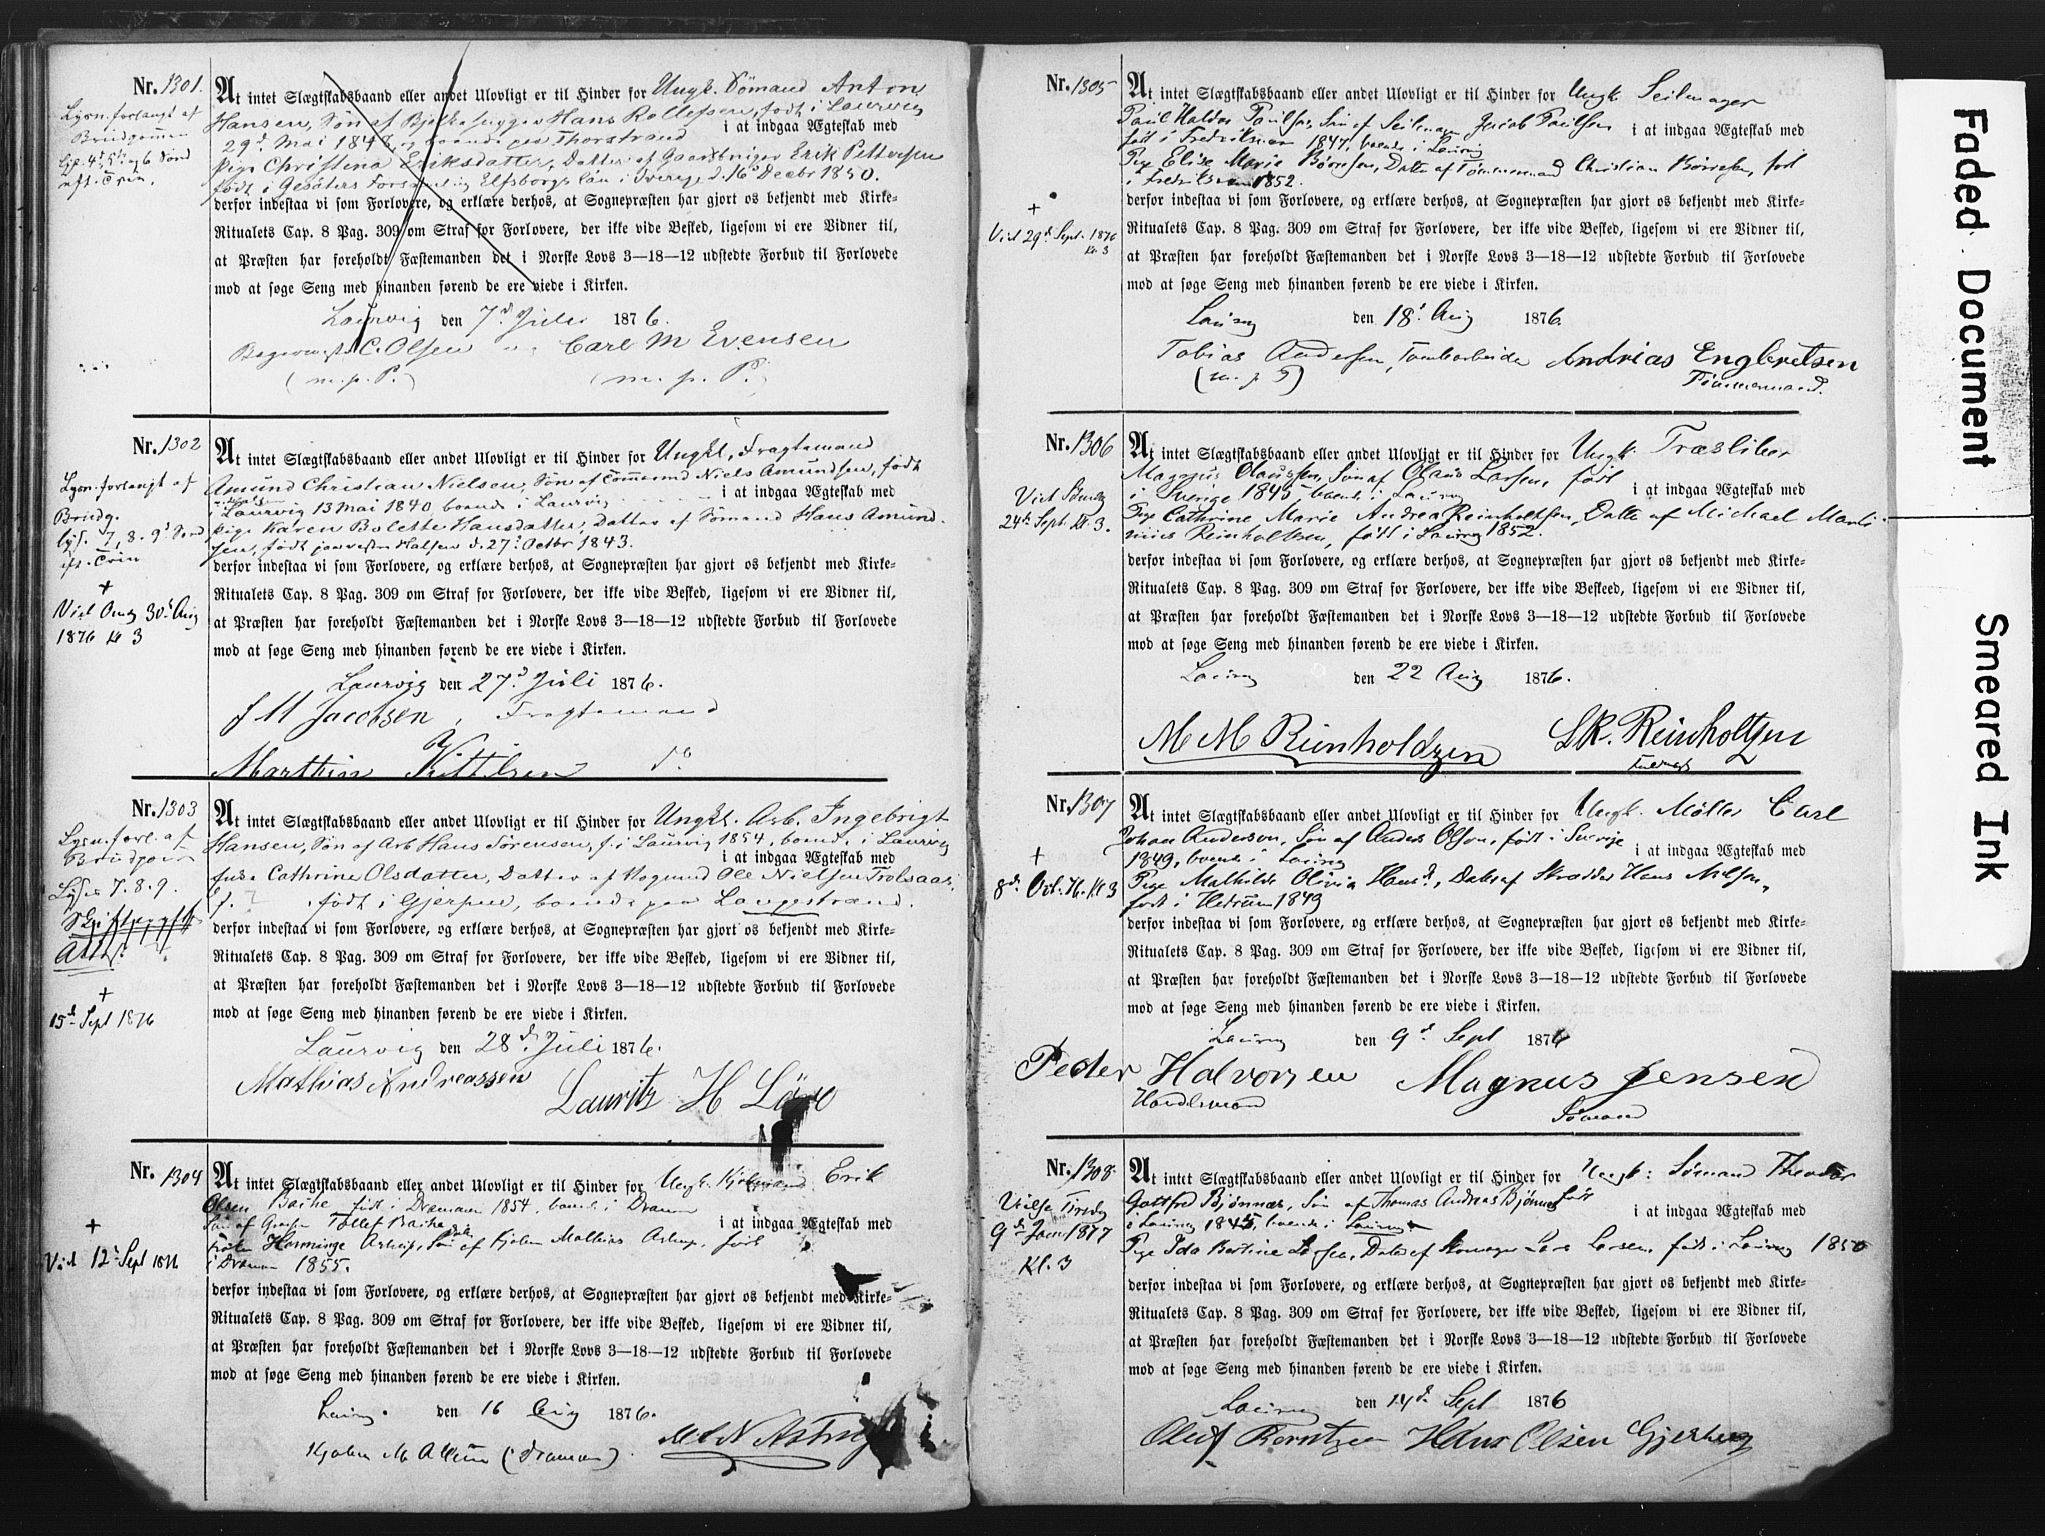 Nr. 1301.
Lysn. forlangt af
Brudgommen
At intet Slægtskabsbaand eller andet Ulovligt er til Hinder for Ungk. Sømand Anton
Hansen, Søn af Hans Rollefsen, født i Laurvig
29d Mai i at indgaa Ægteskab med
Pige Christina Eriksdatter, Datter af Erik Pettersen
født i Forsamling Elfsborgs län i Sverige d. 16d Decbr 1850.
derfor indestaa vi som Forlovere, og erklære derhos, at Sognepræsten har gjort os bekjendt med Kirke-
Ritualets Cap. 8 Pag. 309 om Straf for Forlovere, der ikke vide Besked, ligesom vi ere Vidner til,
at Præsten har foreholdt Fæstemanden det i Norske Lovs 3—18—12 udstedte Forbud til Forlovede
mod at søge Seng med hinanden førend de ere viede i Kirken.
Laurvig den 7d Juli 1876.
C. Olsen og Carl M Evensen
(m. p. P.) (m. p. P.)
Nr. 1302
Lysn. forlangt af
Brudg.
lys. 7, 8. 9d Sønd
eft. Trin
+
Viet Onsg 30d Aug
1876 Kl 3
At intet Slægtskabsbaand eller andet Ulovligt er til Hinder for Ungkl. Fragtemand
Amund Christian Nielsen, Søn af Niels Amundsen, født
i Laurvig 13 Mai 1840 boende i Laurvig i at indgaa Ægteskab med
Pige Karen Bolette Hansdatter, Datter af Sømand Hans Amund-
sen, født d. 27d Octbr 1843.
derfor indestaa vi som Forlovere, og erklære derhos, at Sognepræsten har gjort os bekjendt med Kirke-
Ritualets Cap. 8 Pag. 309 om Straf for Forlovere, der ikke vide Besked, ligesom vi ere Vidner til,
at Præsten har foreholdt Fæstemanden det i Norske Lovs 3—18—12 udstedte Forbud til Forlovede
mod at søge Seng med hinanden førend de ere viede i Kirken.
Laurvig den 27d Juli 1876.
J M Jacobsen, Fragtemand
Marthin Kittilsen do
Nr. 1303
Lysn. forl. af
Brudgom
Lyses 7. 8. 9.
Attest
+
15d Sept 1876
At intet Slægtskabsbaand eller andet Ulovligt er til Hinder for Ungkl. Arb. Ingebrigt
Hansen, Søn af Arb Hans Sørensen, f. i Laurvig 1854, boende i Laurvig
i at indgaa Ægteskab med
Cathrine Olsdatter, Datter af Ole Nielsen
født i Gjerpen, boende paa Langestrand.
derfor indestaa vi som Forlovere, og erklære derhos, at Sognepræsten har gjort os bekjendt med Kirke-
Ritualets Cap. 8 Pag. 309 om Straf for Forlovere, der ikke vide Besked, ligesom vi ere Vidner til,
at Præsten har foreholdt Fæstemanden det i Norske Lovs 3—18—12 udstedte Forbud til Forlovede
mod at søge Seng med hinanden førend de ere viede i Kirken.
Laurvig den 28d Juli 1876.
Mathias Andreassen
Lauritz H Løve
Nr. 1304
+
Viet 12d Sept 1876
At intet Slægtskabsbaand eller andet Ulovligt er til Hinder for Ungk. Kjøbmand Erik
Olsen Bache født i Drammen 1854, boende i Drammen
Søn af Tollef Bache i at indgaa Ægteskab med
Frøken Astrup, af Kjøbm Mathias Astrup, født
i Drammen 1855.
derfor indestaa vi som Forlovere, og erklære derhos, at Sognepræsten har gjort os bekjendt med Kirke-
Ritualets Cap. 8 Pag. 309 om Straf for Forlovere, der ikke vide Besked, ligesom vi ere Vidner til,
at Præsten har foreholdt Fæstemanden det i Norske Lovs 3—18—12 udstedte Forbud til Forlovede
mod at søge Seng med hinanden førend de ere viede i Kirken.
Laurvig den 16 Aug 1876.
Kjøbm M (Drammen)
Nr. 1305
+
Viet 29d Sept. 1876
Kl 3
At intet Slægtskabsbaand eller andet Ulovligt er til Hinder for Ungk. Seilmager
Paul Paulsen, Søn af Seilmager Jacob Paulsen i at indgaa Ægteskab med
født i 1847, boende i Laurvig
Pige Elise Marie Børresen, Datter af Tømmermand Christian Børresen, født
i 1852.
derfor indestaa vi som Forlovere, og erklære derhos, at Sognepræsten har gjort os bekjendt med Kirke-
Ritualets Cap. 8 Pag. 309 om Straf for Forlovere, der ikke vide Besked, ligesom vi ere Vidner til,
at Præsten har foreholdt Fæstemanden det i Norske Lovs 3—18—12 udstedte Forbud til Forlovede
mod at søge Seng med hinanden førend de ere viede i Kirken.
Laurvig den 18d Aug 1876.
Tobias Andersen, Andrias Engbretsen
Tømmermand.
Nr. 1306
Viet Søndag
24d Sept. Kl. 3.
At intet Slægtskabsbaand eller andet Ulovligt er til Hinder for Ungk.
Olaussen, Søn af Olaus Larsen, født
i Sverige 1845, boende i Laurvig i at indgaa Ægteskab med
Pige Cathrine Marie Andrea Reinholtsen, Datter af Michael
Reinholtsen, født i Laurvig 1852.
derfor indestaa vi som Forlovere, og erklære derhos, at Sognepræsten har gjort os bekjendt med Kirke-
Ritualets Cap. 8 Pag. 309 om Straf for Forlovere, der ikke vide Beskeed, ligesom vi ere Vidner til,
at Præsten har foreholdt Fæstemanden det i Norske Lovs 3—18—12 udstedte Forbud til Forlovede
mod at søge Seng med hinanden førend de ere viede i Kirken.
Laurvig den 22 Aug 1876.
M M Reinholdzen
Reinholtzen
Nr. 1307
+
8d Oct. 76. Kl 3
At intet Slægtskabsbaand eller andet Ulovligt er til Hinder for Ungk. Møller Carl
Johan Anderson, Søn af Anders Olson, født i Sverige
1849, boende i Laurvig i at indgaa Ægteskab med
Pige Mathilde Olivia Hansd., Datter af Skrædder Hans Nilsen,
født i Hedrum 1849
derfor indestaa vi som Forlovere, og erklære derhos, at Sognepræsten har gjort os bekjendt med Kirke-
Ritualets Cap. 8 Pag. 309 om Straf for Forlovere, der ikke vide Besked, ligesom vi ere Vidner til,
at Præsten har foreholdt Fæstemanden det i Norske Lovs 3—18—12 udstedte Forbud til Forlovede
mod at søge Seng med hinanden førend de ere viede i Kirken.
Laurvig den 9d Sept 1876
Peder Halvorsen Magnus Jensen
Handelsmand Sømand
Nr. 1308.
Vielse Tirsdg
9d Jan 1877
Kl. 3
At intet Slægtskabsbaand eller andet Ulovligt er til Hinder for Ungk: Sømand Theodor
Gottfred Bjønnæs, Søn af Thomas Andreas Bjønnes født
i Laurvig 1845, boende i Laurvig i at indgaa Ægteskab med
Pige Ida Bertine Larsen, Datter af Lars Larsen, født i Laurvig 1850
derfor indestaa vi som Forlovere, og erklære derhos, at Sognepræsten har gjort os bekjendt med Kirke-
Ritualets Cap. 8 Pag. 309 om Straf for Forlovere, der ikke vide Besked, ligesom vi ere Vidner til,
at Præsten har foreholdt Fæstemanden det i Norske Lovs 3—18—12 udstedte Forbud til Forlovede
mod at søge Seng med hinanden førend de ere viede i Kirken.
Laurvig den 14d Sept 1876
Oluf Berntzen Hans Olsen Gjerberg
Faded Document
Smeared Ink